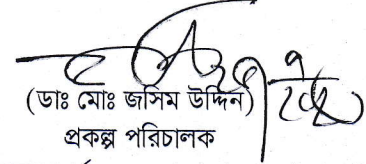 (ডাঃ মোঃ জসিম উদ্দিন)
প্রকল্প পরিচালক